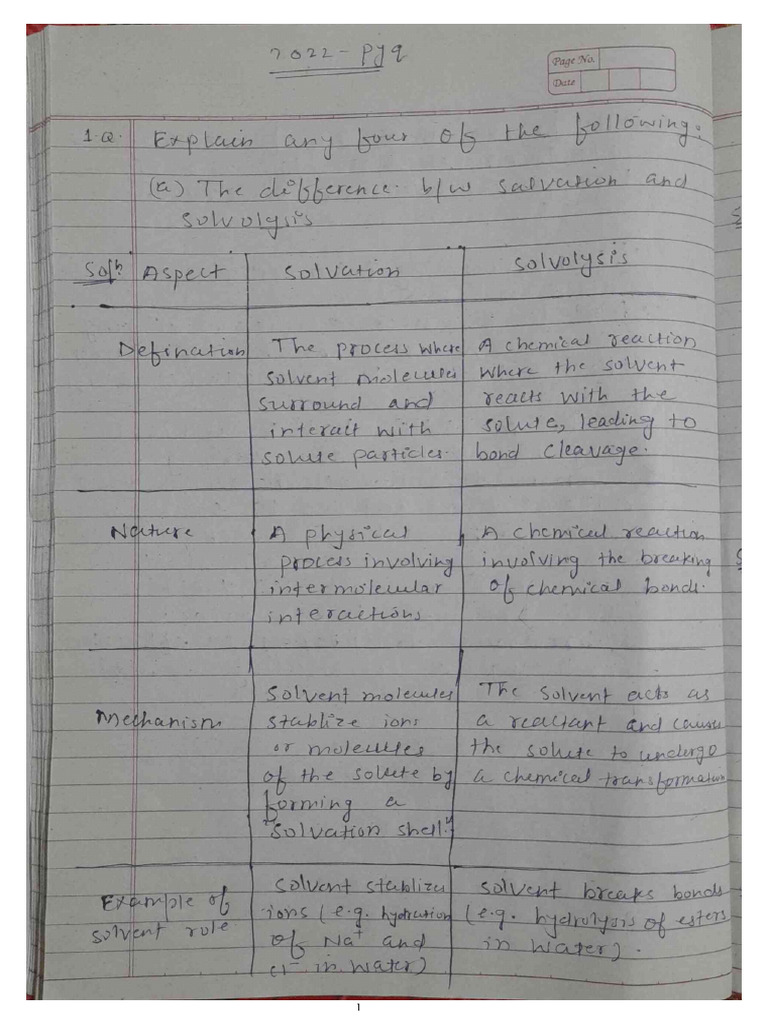 2022 - pyq
Page No.
Date
1.Q. Explain any four of the following:
(a) The difference b/w salvation and
solvolysis
Solⁿ. Aspect
Solvation
Solvolysis
Defination
The process where
solvent molecules
surround and
interait with
solute particles.
A chemical reaction
where the solvent
reacts with the
solute, leading to
bond cleavage.
Nature
A physical
process involving
intermolecular
interactions
A chemical reaction
involving the breaking
of chemical bonds.
Mechanism
Solvent molecules
stablize ions
or molecules
of the solute by
forming a
"solvation shell."
The solvent acts as
a reactant and causes
the solute to undergo
a chemical transformation
Example of
solvent role
Solvent stablizes
ions (e.g. hydration
of Na⁺ and
Cl⁻ in water)
Solvent breaks bonds
(e.g. hydrolysis of esters
in water).
1